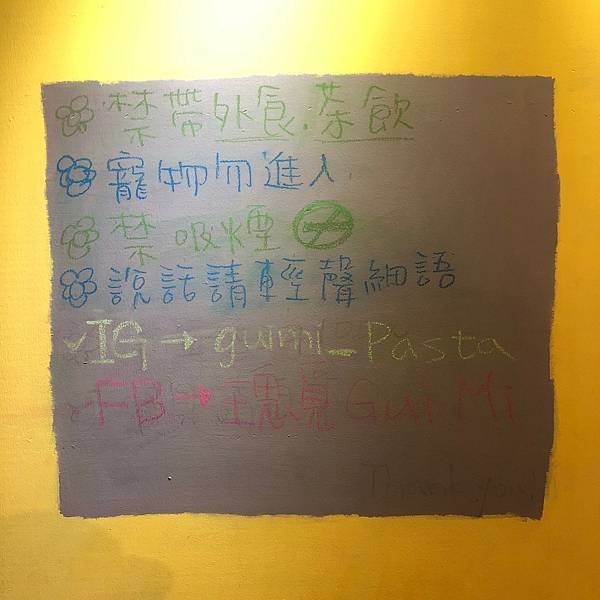 禁帶外食.茶飲
寵物勿進入
禁吸煙
說話請輕聲細語
IG→gumi_Pasta
FB→ Gui Mi
Thank you!